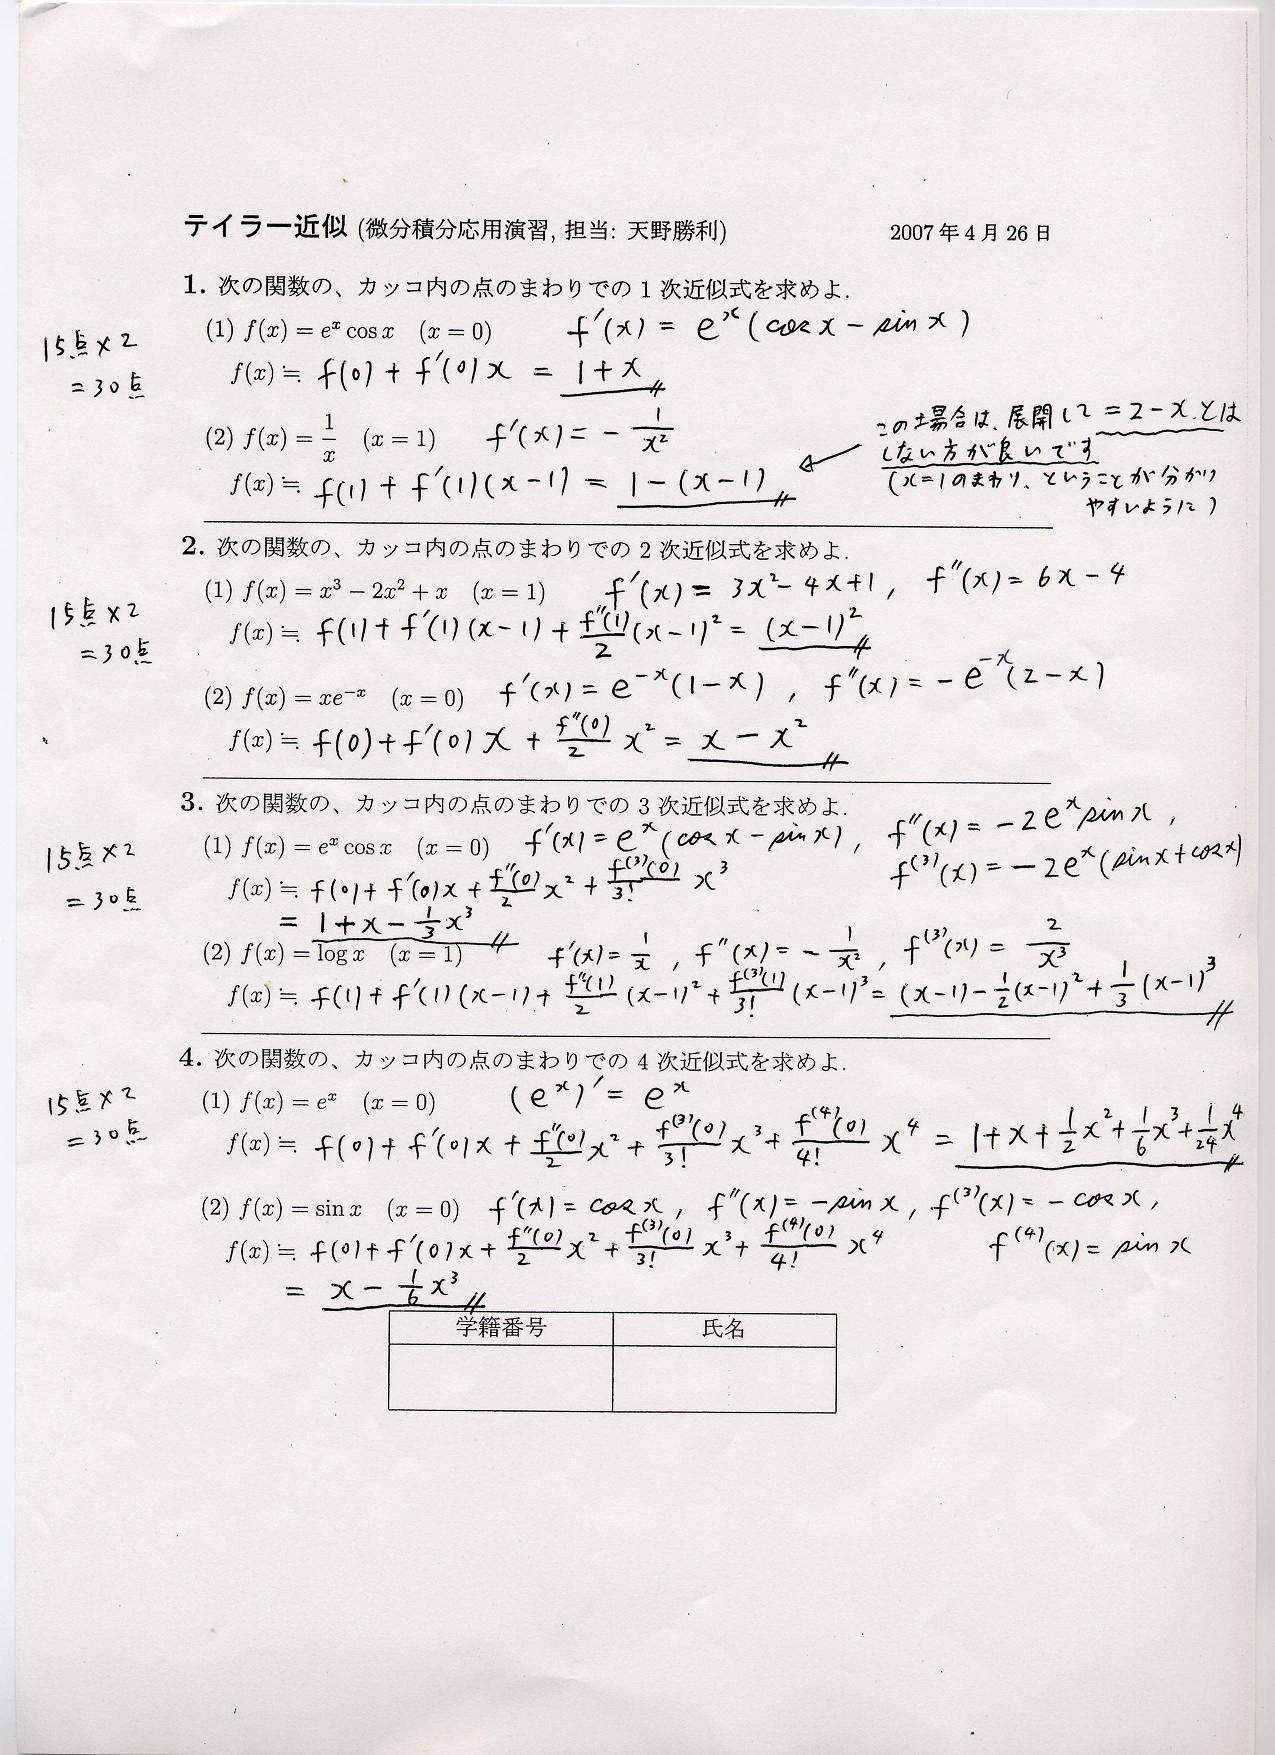 テイラー近似 (微分積分応用演習, 担当: 天野勝利) 2007 年 4 月 26 日
1. 次の関数の、カッコ内の点のまわりでの 1 次近似式を求めよ.
(1) f(x) = e^x cos x (x = 0) f′(x) = e^x (cos x − sin x)
15点×2
= 30点
f(x) ≒ f(0) + f′(0)x = 1 + x
(2) f(x) = 1/x (x = 1) f′(x) = − 1/x²
この場合は、展開して = 2 − x とは
しない方が良いです
(x=1のまわり、ということが分かり
やすいように)
f(x) ≒ f(1) + f′(1)(x−1) = 1 − (x−1)
2. 次の関数の、カッコ内の点のまわりでの 2 次近似式を求めよ.
(1) f(x) = x³ − 2x² + x (x = 1) f′(x) = 3x² − 4x + 1, f″(x) = 6x − 4
15点×2
= 30点
f(x) ≒ f(1) + f′(1)(x−1) + f″(1)/2 (x−1)² = (x−1)²
(2) f(x) = xe^−x (x = 0) f′(x) = e^−x (1−x), f″(x) = −e^−x (2−x)
f(x) ≒ f(0) + f′(0)x + f″(0)/2 x² = x − x²
3. 次の関数の、カッコ内の点のまわりでの 3 次近似式を求めよ.
(1) f(x) = e^x cos x (x = 0) f′(x) = e^x (cos x − sin x), f″(x) = −2e^x sin x,
f⁽³⁾(x) = −2e^x (sin x + cos x)
15点×2
= 30点
f(x) ≒ f(0) + f′(0)x + f″(0)/2 x² + f⁽³⁾(0)/3! x³
= 1 + x − 1/3 x³
(2) f(x) = log x (x = 1) f′(x) = 1/x, f″(x) = − 1/x², f⁽³⁾(x) = 2/x³
f(x) ≒ f(1) + f′(1)(x−1) + f″(1)/2 (x−1)² + f⁽³⁾(1)/3! (x−1)³ = (x−1) − 1/2 (x−1)² + 1/3 (x−1)³
4. 次の関数の、カッコ内の点のまわりでの 4 次近似式を求めよ.
(1) f(x) = e^x (x = 0) (e^x)′ = e^x
15点×2
= 30点
f(x) ≒ f(0) + f′(0)x + f″(0)/2 x² + f⁽³⁾(0)/3! x³ + f⁽⁴⁾(0)/4! x⁴ = 1 + x + 1/2 x² + 1/6 x³ + 1/24 x⁴
(2) f(x) = sin x (x = 0) f′(x) = cos x, f″(x) = −sin x, f⁽³⁾(x) = −cos x,
f(x) ≒ f(0) + f′(0)x + f″(0)/2 x² + f⁽³⁾(0)/3! x³ + f⁽⁴⁾(0)/4! x⁴ f⁽⁴⁾(x) = sin x
= x − 1/6 x³
学籍番号 氏名